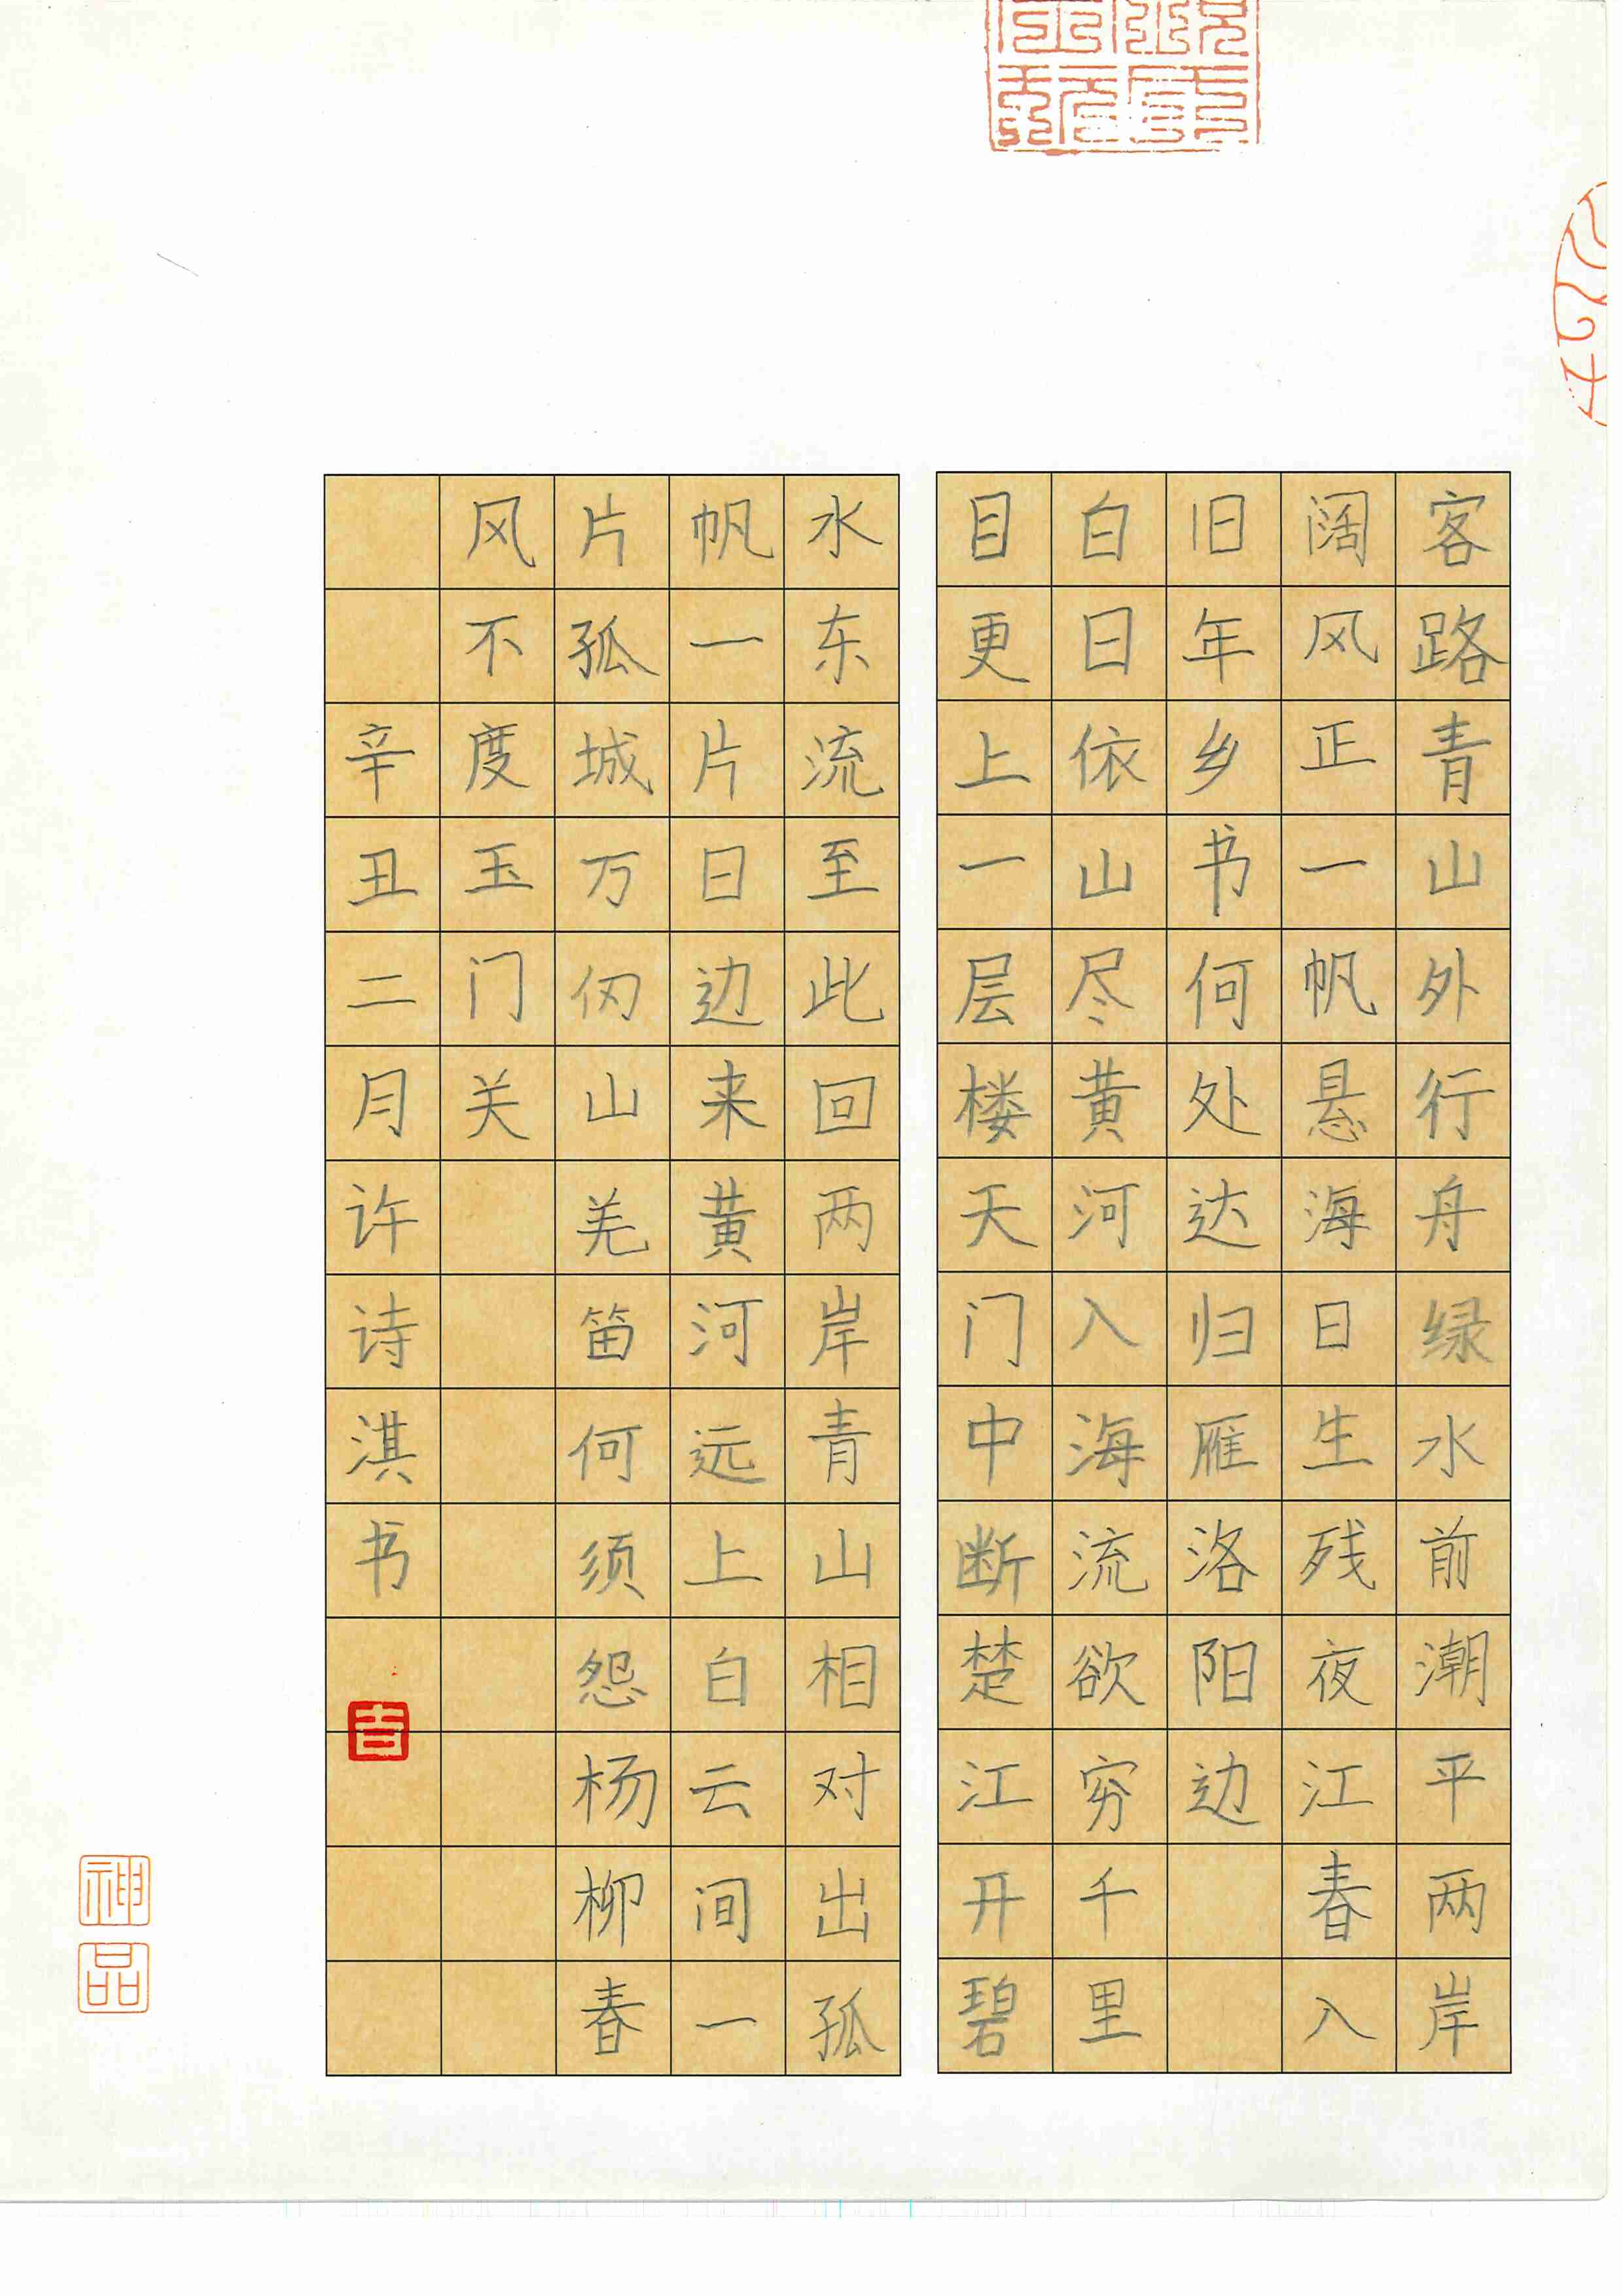 客路青山外行舟绿水前潮平两岸
阔风正一帆悬海日生残夜江春入
旧年乡书何处达归雁洛阳边
白日依山尽黄河入海流欲穷千里
目更上一层楼天门中断楚江开碧
水东流至此回两岸青山相对出孤
帆一片日边来黄河远上白云间一
片孤城万仞山羌笛何须怨杨柳春
风不度玉门关
辛丑二月许诗淇书
吉
神品